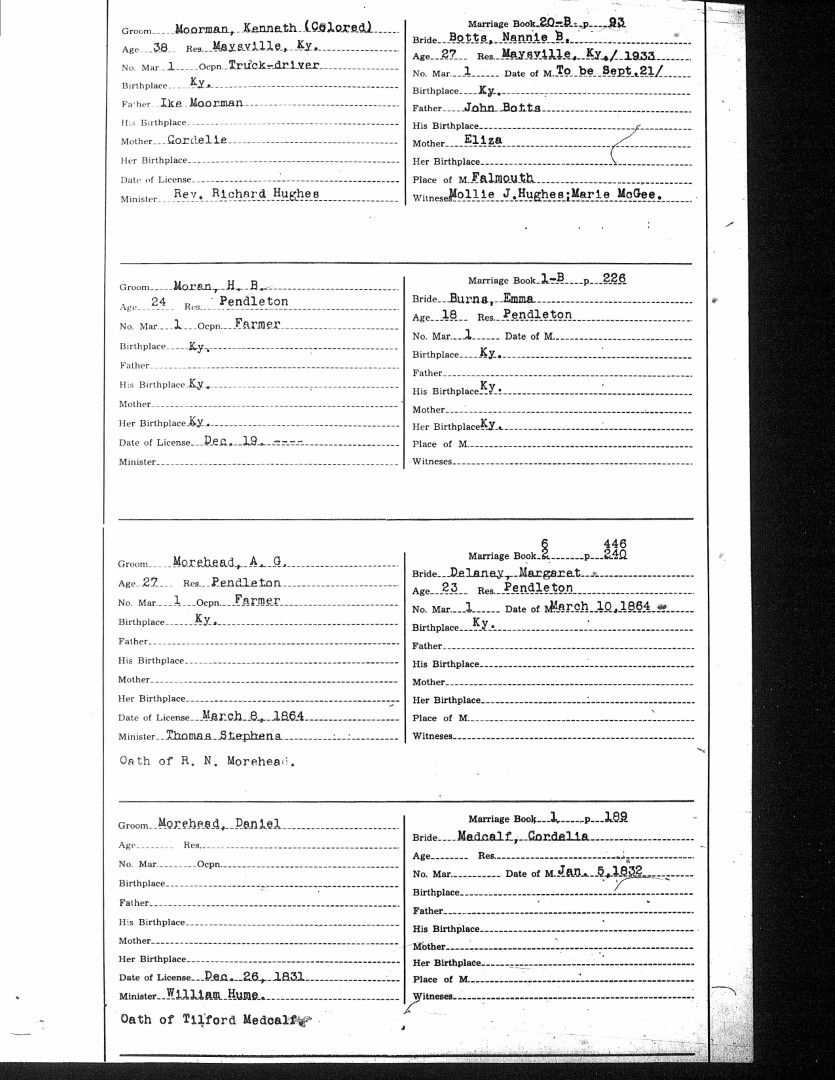 Groom Moorman, Kenneth (Colored)
Age 38 Res. Maysville, Ky.
No. Mar. 1 Ocpn. Truck-driver
Birthplace Ky.
Father Ike Moorman
His Birthplace
Mother Cordelie
Her Birthplace
Date of License
Minister Rev. Richard Hughes
Marriage Book 20-B p. 93
Bride Botts, Nannie B.
Age 27 Res. Maysville, Ky./ 1933
No. Mar. 1 Date of M. To be Sept.21/
Birthplace Ky.
Father John Botts
His Birthplace
Mother Eliza
Her Birthplace
Place of M. Falmouth
Witnesses Mollie J.Hughes;Marie McGee.
Groom Moran, H. B.
Age 24 Res. Pendleton
No. Mar. 1 Ocpn. Farmer
Birthplace Ky.
Father
His Birthplace Ky.
Mother
Her Birthplace Ky.
Date of License Dec. 19. ----
Minister
Marriage Book 1-B p. 226
Bride Burns, Emma
Age 18 Res. Pendleton
No. Mar. 1 Date of M.
Birthplace Ky.
Father
His Birthplace Ky.
Mother
Her Birthplace Ky.
Place of M.
Witnesses
Groom Morehead, A. G.
Age 27 Res. Pendleton
No. Mar. 1 Ocpn. Farmer
Birthplace Ky.
Father
His Birthplace
Mother
Her Birthplace
Date of License March 8, 1864
Minister Thomas Stephens
Oath of R. N. Morehead.
6 446
Marriage Book 2 p. 240
Bride Delaney, Margaret
Age 23 Res. Pendleton
No. Mar. 1 Date of M March 10,1864
Birthplace Ky.
Father
His Birthplace
Mother
Her Birthplace
Place of M.
Witnesses
Groom Morehead, Daniel
Age Res.
No. Mar. Ocpn.
Birthplace
Father
His Birthplace
Mother
Her Birthplace
Date of License Dec. 26, 1831
Minister William Hume.
Oath of Tilford Medcalf
Marriage Book 1 p. 189
Bride Medcalf, Cordelia
Age Res.
No. Mar. Date of M. Jan. 5,1832
Birthplace
Father
His Birthplace
Mother
Her Birthplace
Place of M.
Witnesses